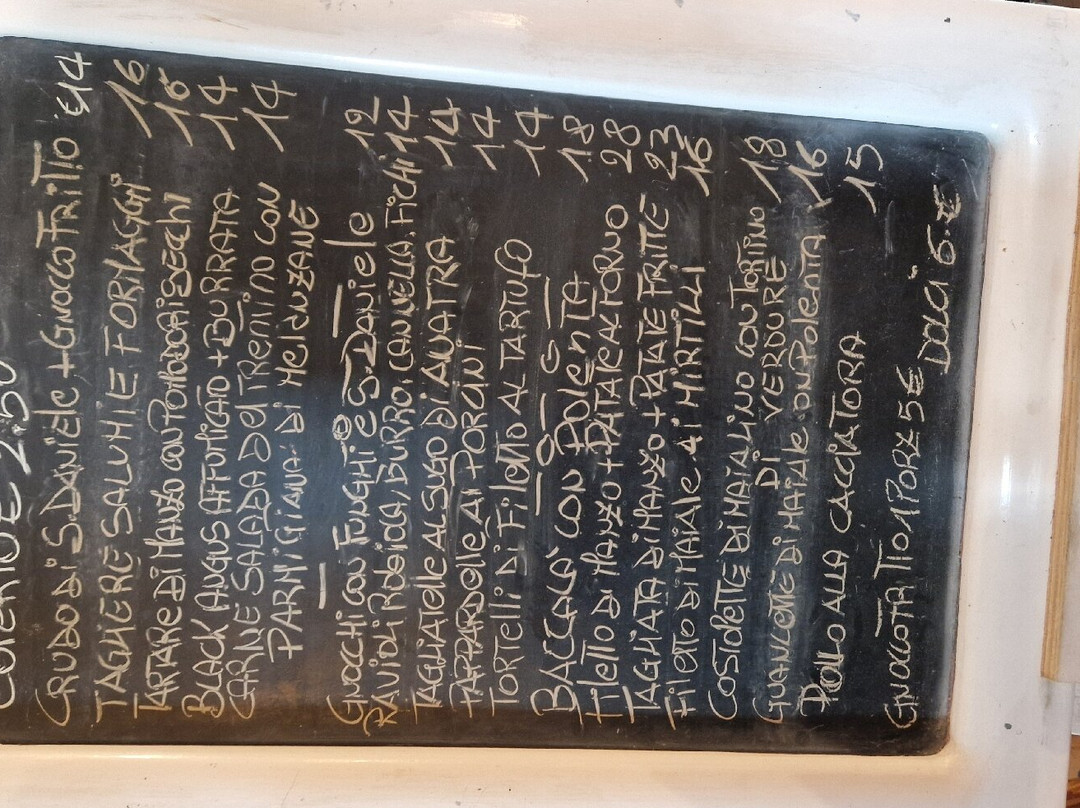 COPERTO € 2.50
CRUDO DI S DANIELE + GNOCCO FRITTO €14
TAGLIERE SALUMI E FORMAGGI 16
TARTARE DI MANZO CON POMODORI SECCHI 16
BLACK ANGUS AFFUMICATO + BURRATA 14
CARNE SALADA DEL TRENTINO CON 14
PARMIGIANA DI MELANZANE
GNOCCHI CON FUNGHI E S. DANIELE 12
RAVIOLI ROSICCA, BURRO, CANNELLA, FICHI 14
TAGLIATELLE AL SUGO DI ANATRA 14
PAPPARDELLE AI PORCINI 14
TORTELLI DI FILETTO AL TARTUFO 14
BACCALÀ CON POLENTA 18
FILETTO DI MANZO + PATATE AL FORNO 28
TAGLIATA DI MANZO + PATATE FRITTE 23
FILETTO DI MAIALE AI MIRTILLI 16
COSTOLETTE DI MAIALINO CON TORTINO 18
DI VERDURE
GUANCETTE DI MAIALE CON POLENTA 16
POLLO ALLA CACCIATORA 15
GNOCCO FRITTO 1 PORZ 5€
DOLCI 6.€